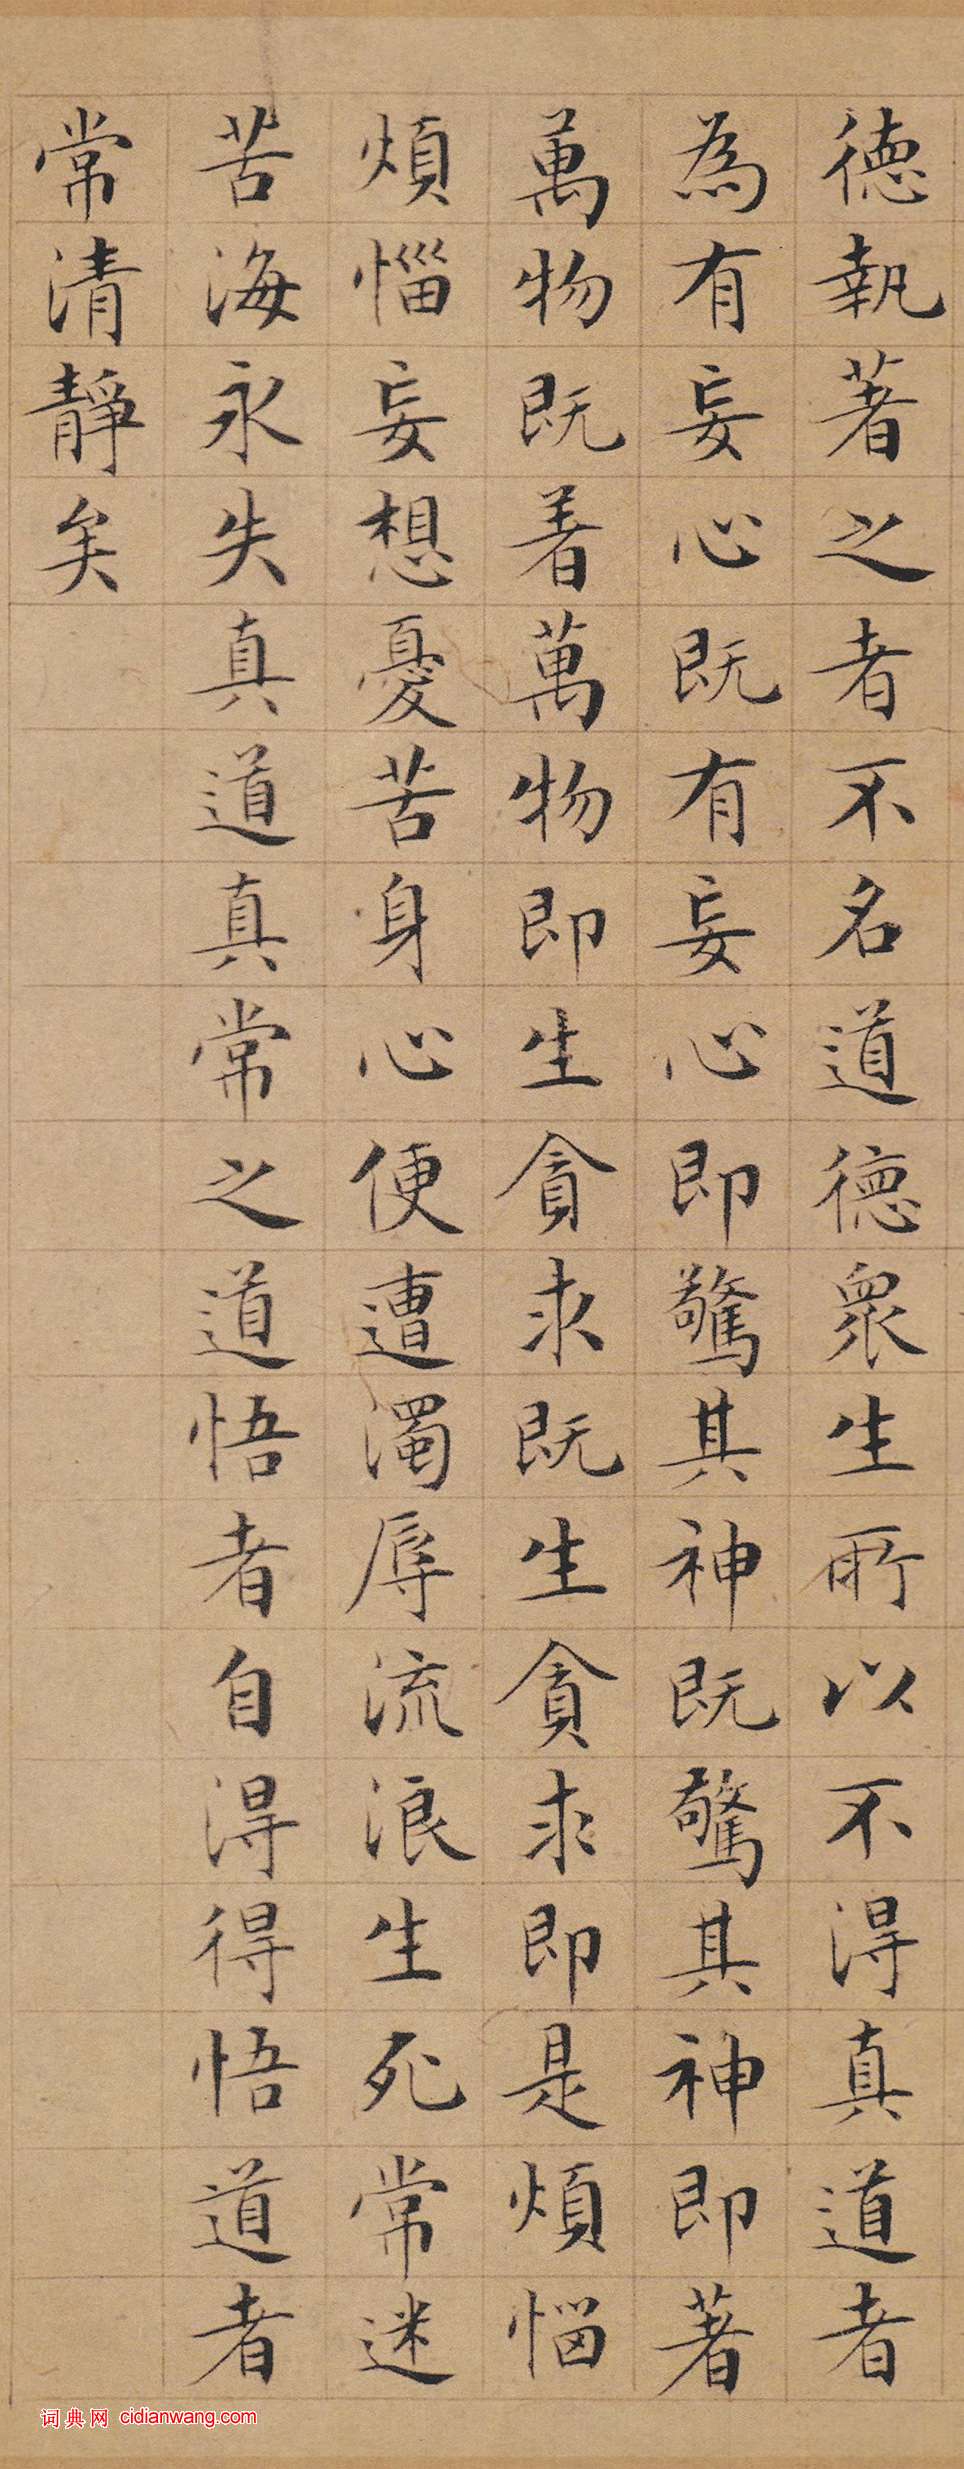 德執著之者不名道德眾生所以不得真道者
為有妄心既有妄心即驚其神既驚其神即著
萬物既着萬物即生貪求既生貪求即是煩惱
煩惱妄想憂苦身心便遭濁辱流浪生死常迷
苦海永失真道真常之道悟者自得得悟道者
常清靜矣
词典网 cidianwang.com